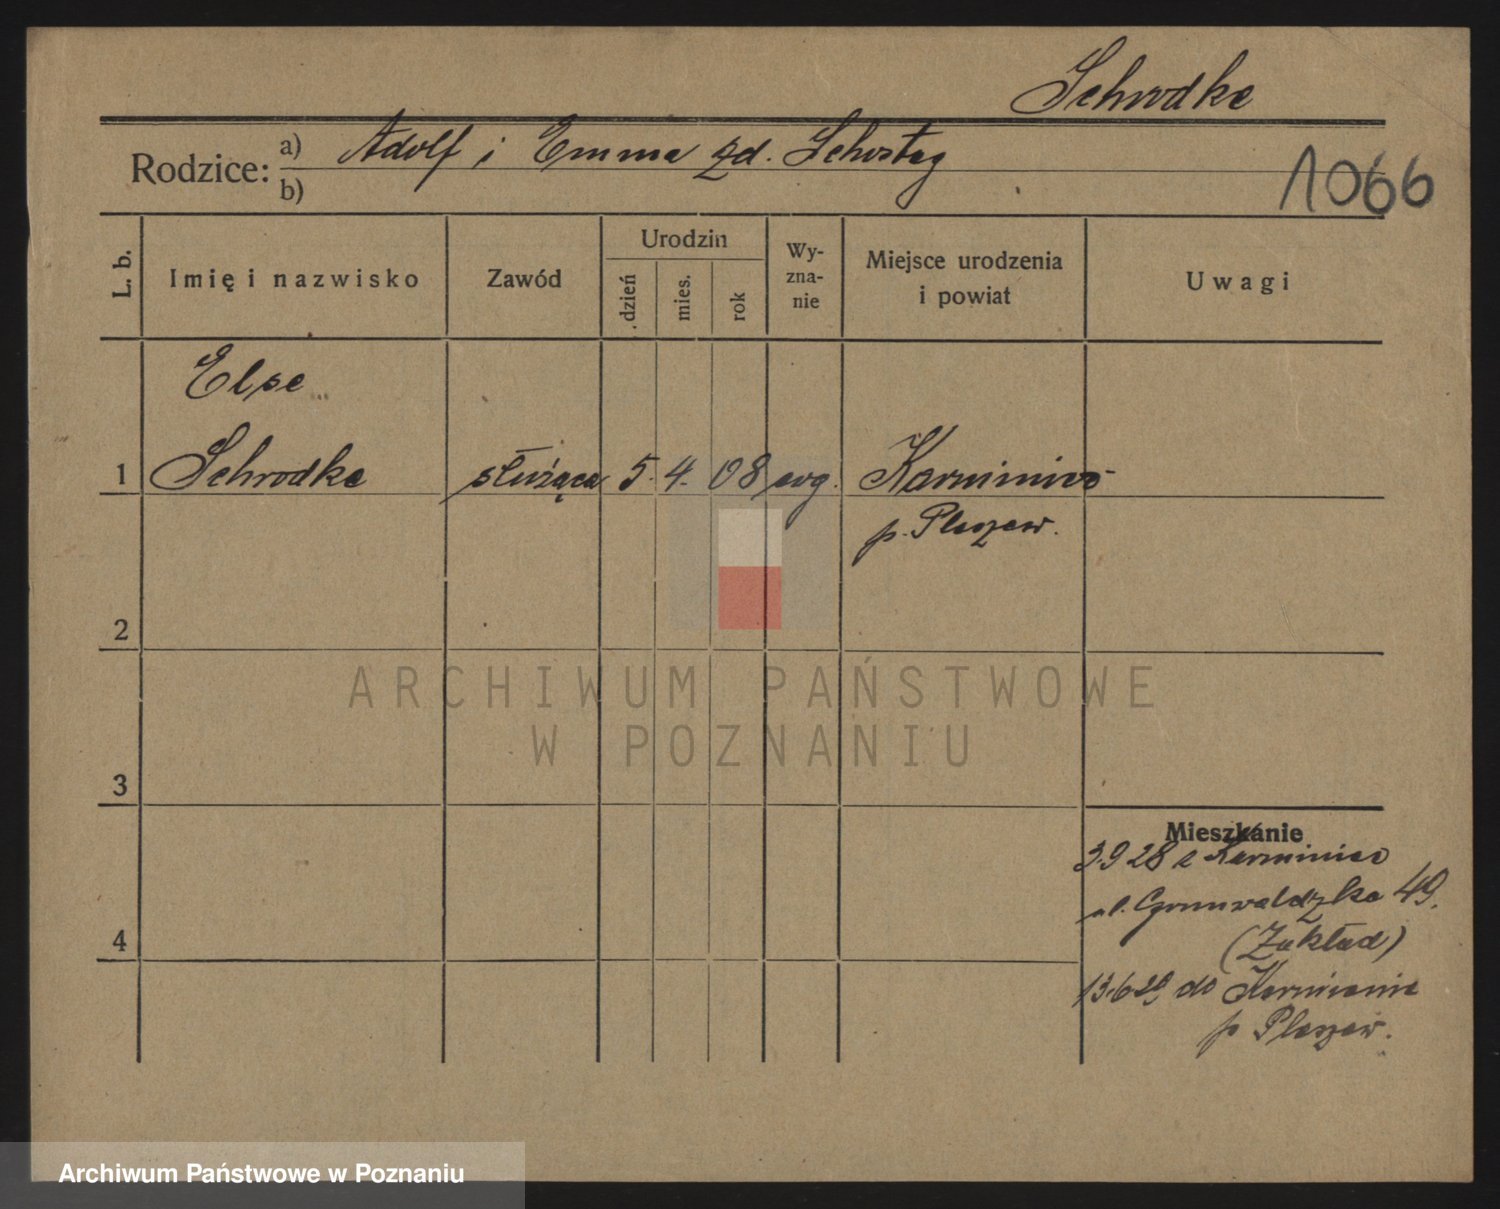 Schrodke
Rodzice: a) Adolf i Emma zd. Schostag
b)
1066
L. b.
Imię i nazwisko
Zawód
Urodzin
dzień
mies.
rok
Wy-
zna-
nie
Miejsce urodzenia
i powiat
Uwagi
Else
1 Schrodke służąca 5. 4. 08 ewg. Karminiec
p. Pleszew.
2
ARCHIWUM PAŃSTWOWE
W POZNANIU
3
Mieszkanie
3.9 28 z Karminiec
ul. Grunwaldzka 49.
4
(Zakład)
13.6.29. do
p Pleszew.
Archiwum Państwowe w Poznaniu